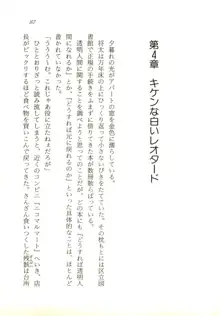 167
第4章 キケンな白いレオタード
夕暮れの光がアパートの窓を金色に濡らしている。
将太は万年床の上にひっくり返り、小さないびきをたてていた。その枕もとには区立図
書館で正規の手続きをふんで借りてきた、
透明人間に関する本が数冊散らばっている。
もともと思ってのことだが、どの本にも「どうすれば透明人
間になれるか」とか、「どうすれば元に戻れるのか」といった具体的なことは、ほとんど
書かれていなかった。
「うううーむ。これじゃあ役に立たねえだろが」
ひととおりざっと読み流してしまうと、近くのコンビニ『ニコマルマート』へいき、店
員がビックリするほど食べ物を買いこんで戻ってきた。さんざん食いつくした残骸は台所